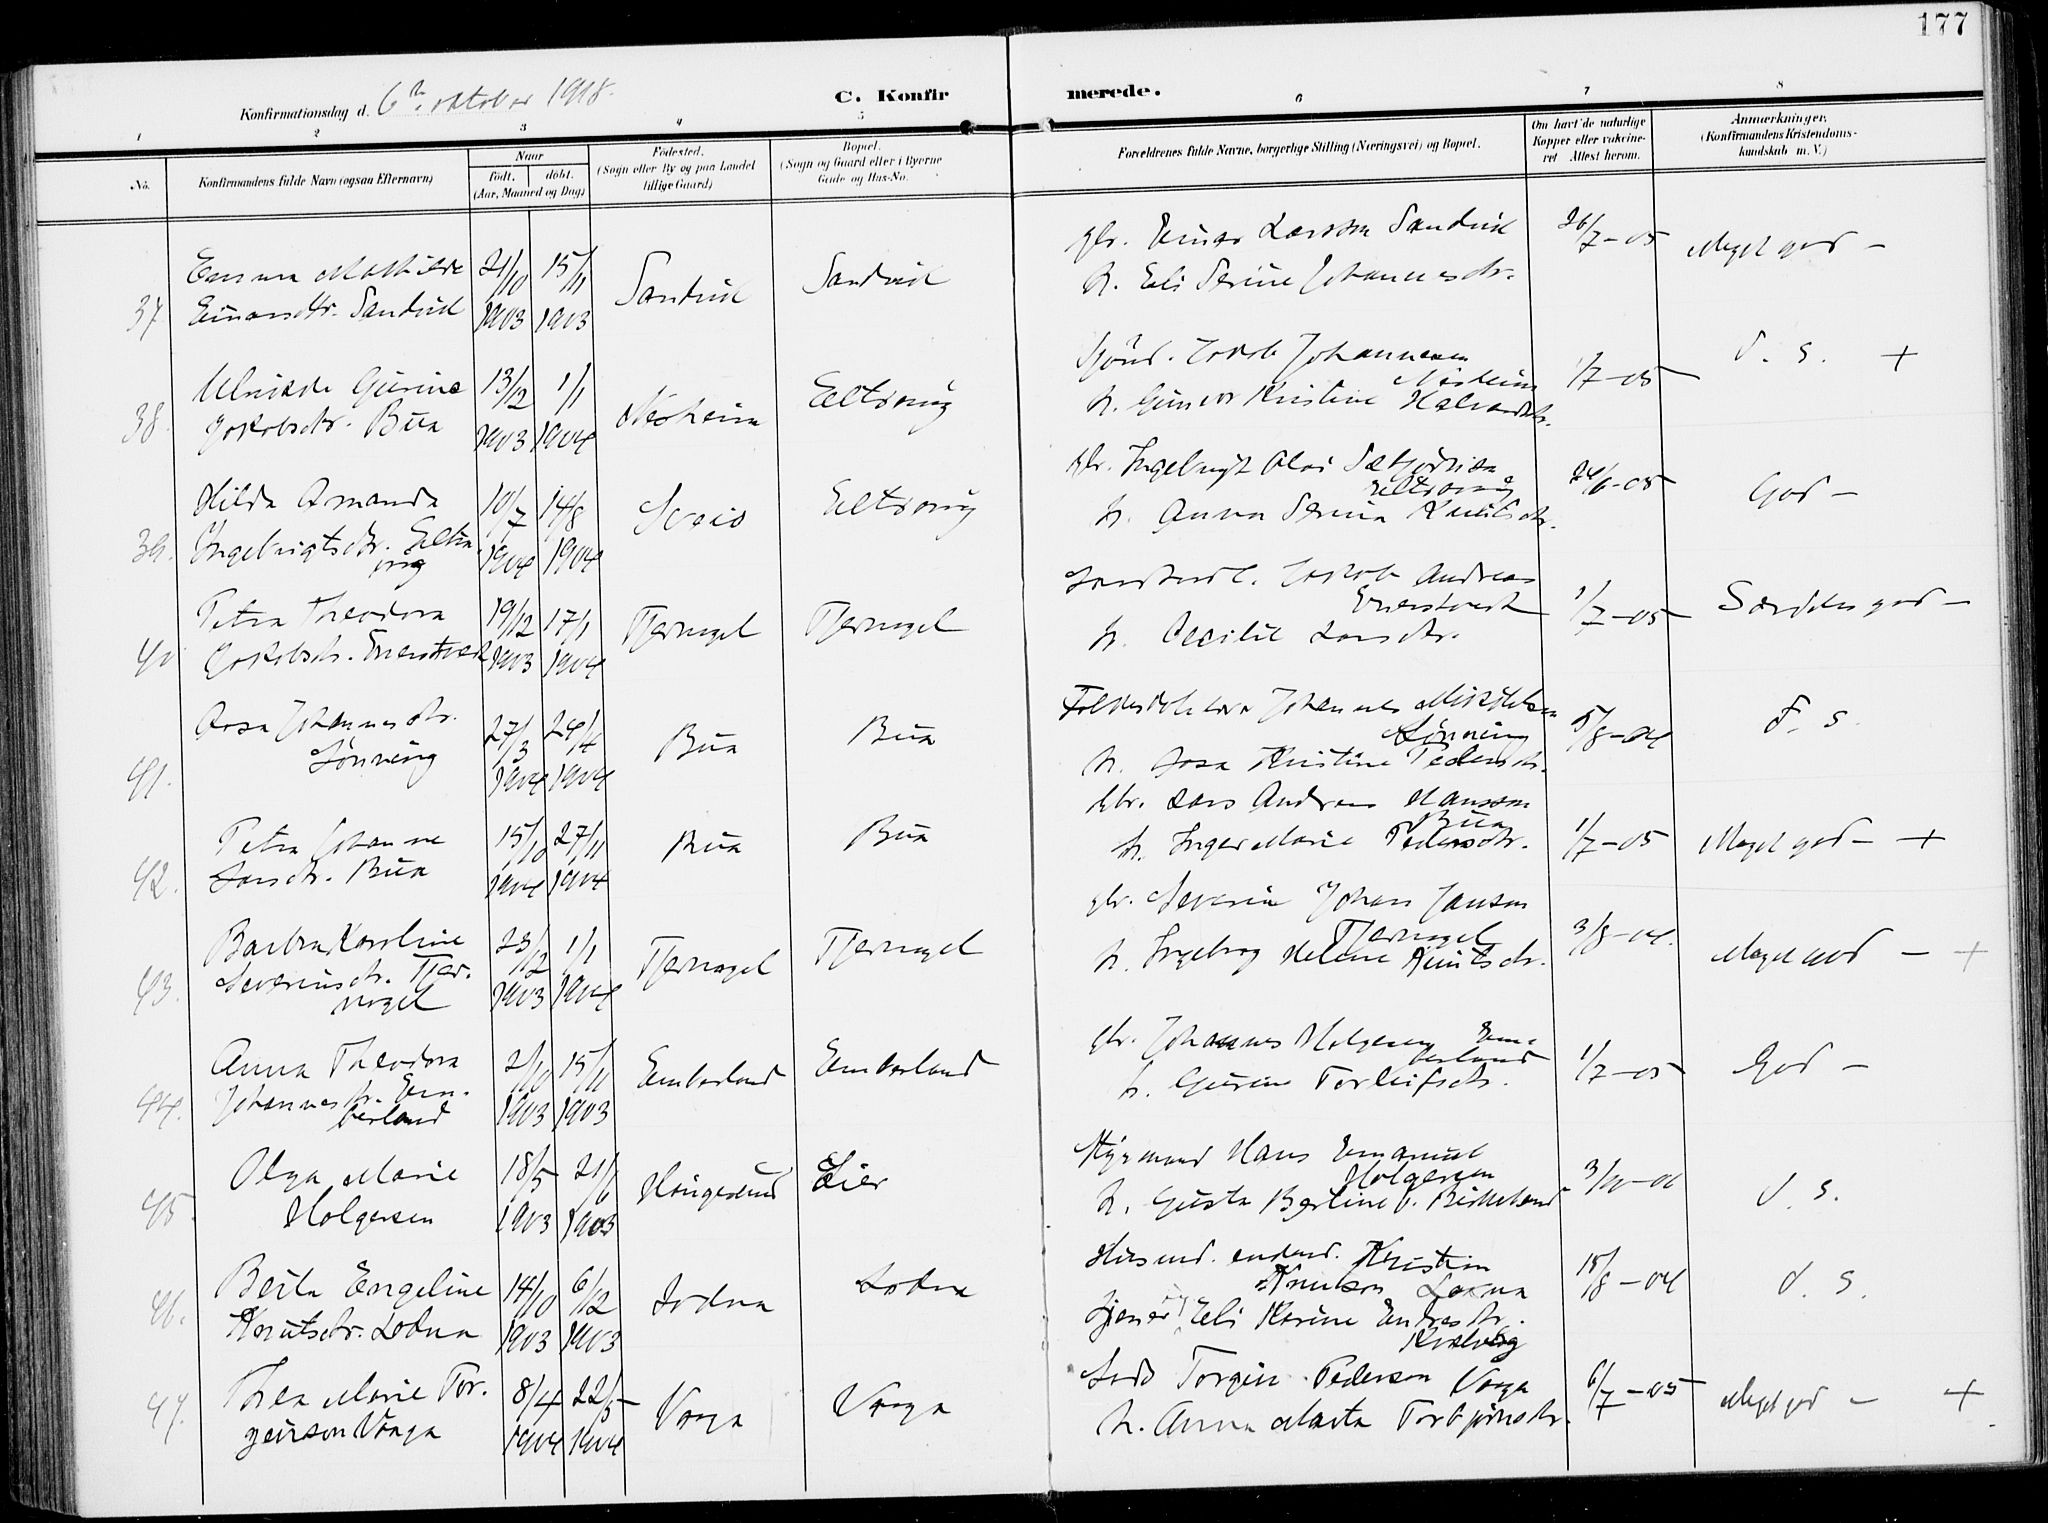 177
Konfirmationsdag d. 6te oktober 1918.
C. Konfirmerede.
1 2 3 4 5 6 7 8
No.
Konfirmandens fulde Navn (ogsaa Efternavn)
Naar
født. døbt.
(Aar, Maaned og Dag)
Fødested.
(Sogn eller By og paa Landet
tillige Gaard)
Bopæl.
(Sogn og Gaard eller i Byerne
Gade og Hus-No.
Forældrenes fulde Navne, borgerlige Stilling (Næringsvei) og Bopæl.
Om havt de naturlige
Kopper eller vakcine-
ret Attest herom.
Anmærkninger.
(Konfirmandens Kristendoms-
kundskab m. V.)
37. Emma Mathilde
Einarsdtr. Sandvik
21/10 1903
15/11 1903
Sandvik
Sandvik
gbr. Einar Larsson Sandvik
h. Eli Serine Johannesdtr.
26/7-05
Meget god -
38. Gurine
Jakobsdtr. Bua
13/12 1903
1/1 1904
Nesheim
Eltravaag
Jakob Johannesen
Nesheim
h. Gunvor Kristine Halvardsdtr.
1/7-05
d. s. +
39. Hilda Amanda
Ingebrigtsdtr. Eltra
vaag
10/7 1904
14/8 1904
Sveio
Eltravaag
gbr. Ingebrigt Olai
Eltravaag
h. Anna Serina Knutsdtr.
24/6-05
God -
40. Petra Theodora
Jakobsdtr.
19/12 1903
17/1 1904
Tjernagel
Tjernagel
Jakob Andreas
h. Cecilie Larsdtr.
1/7-05
Særdeles god -
41. Aasa Johannesdtr.
Lønning
27/3 1904
24/4 1904
Bua
Bua
Johannes Mikkelsen
Lønning
h. Kristine Pedersdtr.
5/8-04
d. s.
42. Petra Johanne
Larsdtr. Bua
15/10 1904
27/11 1904
Bua
Bua
gbr. Lars Andreas Hansson
Bua
h. Inger Marie Pedersdtr.
1/7-05
Meget god - +
43. Barbra Karoline
Severinsdtr. Tjer-
nagel
23/12 1903
1/1 1904
Tjernagel
Tjernagel
gbr. Severin Johan Janson
Tjernagel
h. Ingeborg Helene Knutsdtr.
3/8-04.
Meget god - +
44. Anna Theodora
Johannesdtr. Em-
berland
2/10 1903
15/11 1903
Emberland
Emberland
gbr. Johannes Holgersen Em-
berland
h. Gurine Torleifsdtr.
1/7-05
God -
45. Olga Marie
Holgersen
18/5 1903
21/6 1903
Haugesund
Lier
Styrmand Hans Emanuel
Holgersen
h. Gusta Bertine f. Birkeland
3/10-06
d. s.
46. Berta Engeline
Knutsdtr. Lodna
14/10 1903
6/12 1903
Lodna
Lodna
Kristian
Knutson Lodna
Eli Karine Endresdtr.
15/8-04
d. s.
47. Thea Marie Tor-
geirson Vaaga
8/4 1904
22/5 1904
Vaaga
Vaaga
Torgeir Pederson Vaaga
h. Anna Marta Torbjørnsdtr.
6/7-05
Meget god - +